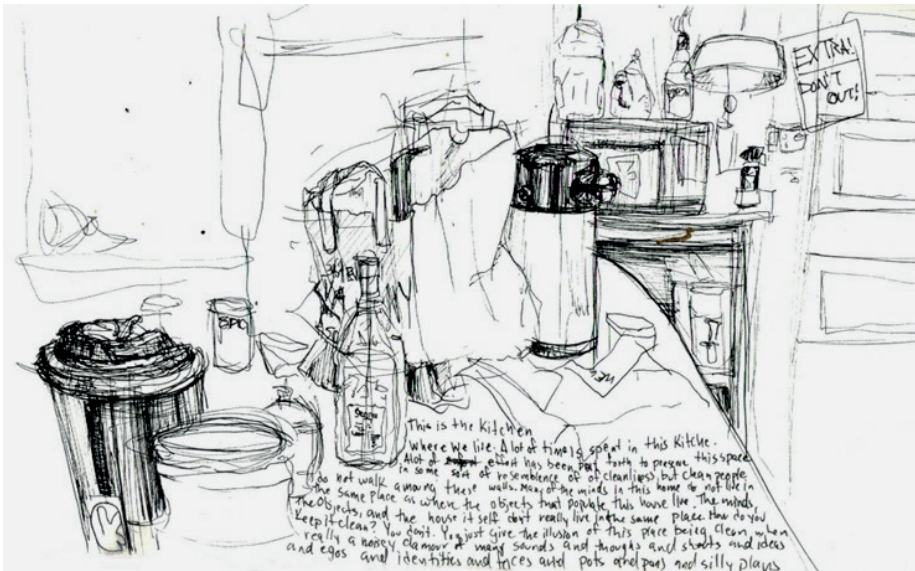 EXTRA!
DON'T
OUT!
SPIC
This is the Kitchen
Where We live. A lot of time is spent in this Kitche.
A lot of effort has been put forth to preserve this space
in some sort of resemblence of of cleanliness, but clean people
do not walk among these walls. Many of the minds in this home do not live in
the same place as where the objects that populate this house live. The minds,
the objects, and the house it self don't really live in the same place. How do you
Keep it clean? You don't. You just give the illusion of this place being clean when
really a noisey clamour of many sounds and thoughs and shouts and ideas
and egos and identities and and pots and pans and silly plans